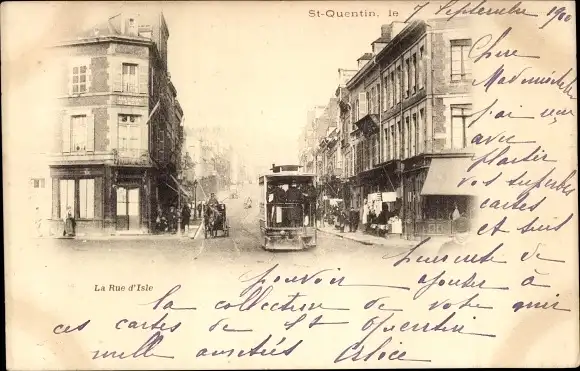 St-Quentin, le 7 Septembre 1900
Chère
Mademoiselle
J'ai reçu
avec
plaisir
vos superbes
cartes
et suis
heureuse de
pouvoir ajouter à
La Rue d'Isle
la collection de votre
ces cartes de St Quentin
mille amitiés Alice